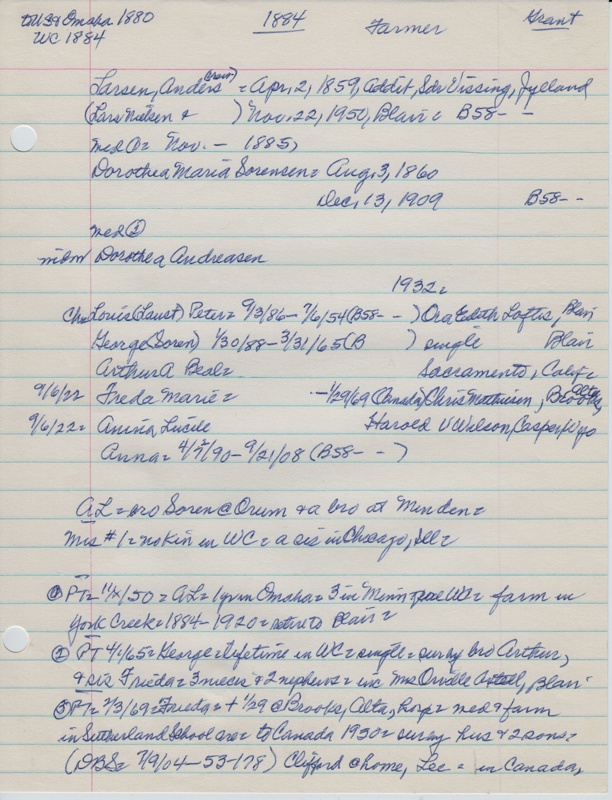 to U.S. @ Omaha 1880 1884 Farmer Grant
WC 1884
Larsen, Anders = Apr. 2, 1859, Addit, Sdr Vissing, Jylland
(Lars Nielsen & ) Nov. 22, 1950, Blair = B58- -
med ① = Nov. - 1885,
Dorothea Maria Sorensen = Aug. 3, 1860
Dec. 13, 1909 B58- -
med ②
Dorothea Andreasen
1932=
Ch= Louis (Laust) Peter = 9/3/86 - 7/6/54 (B58- - ) Ora Edith Loftis, Blair
George (Soren) 1/30/88 - 3/31/65 (B ) single Blair
Arthur A Beal = Sacramento, Calif =
9/6/22 Freda Marie = - 1/29/69 (Canada) Chris Mathiesen, Brooks, Alta
9/6/22 = Anina Lucile Harold V Wilson, Casper, Wyo
Anna = 4/ /90 - 9/21/08 (B58- - )
AL = bro Soren @ Orum & a bro at Minden =
Mrs #1 = no kin in WC = a sis in Chicago, Ill =
① PT = 11/ /50 = AL = 1 yr in Omaha = 3 in Minn WC = farm in
York Creek = 1884 - 1920 = retire to Blair =
② PT 4/1/65 = George = lifetime in WC = single = surv by bro Arthur,
& sis Frieda = 3 nieces & 2 nephews = inc Mrs Orville , Blair
③ PT = 2/3/69 = Frieda = + 1/29 @ Brooks, Alta, hosp = med & farm
in Sutherland School area = to Canada 1930 = surv by hus & 2 sons =
(DBS = 7/9/04 - 53-178) Clifford @ home, Lee = in Canada,